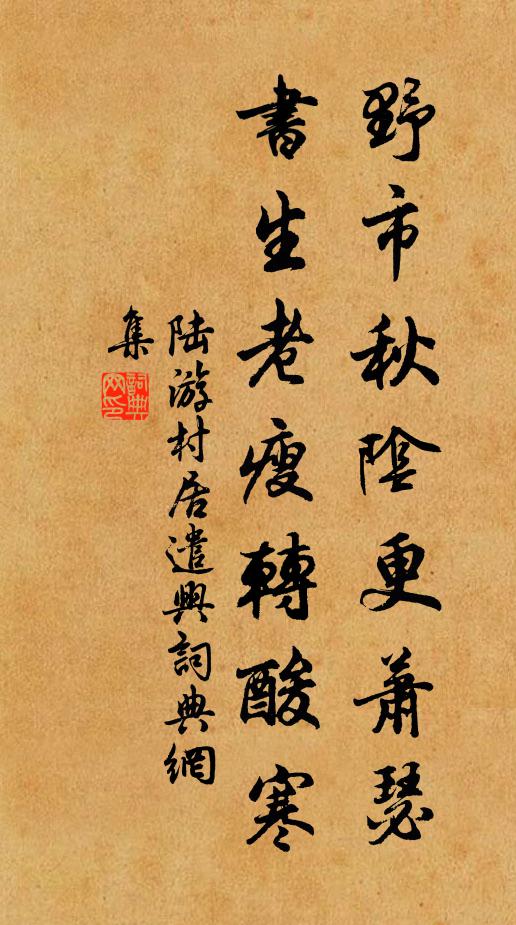 野市秋陰更蕭瑟
書生老瘦轉酸寒
陸游村居遣興詞典網
集
詞典網印